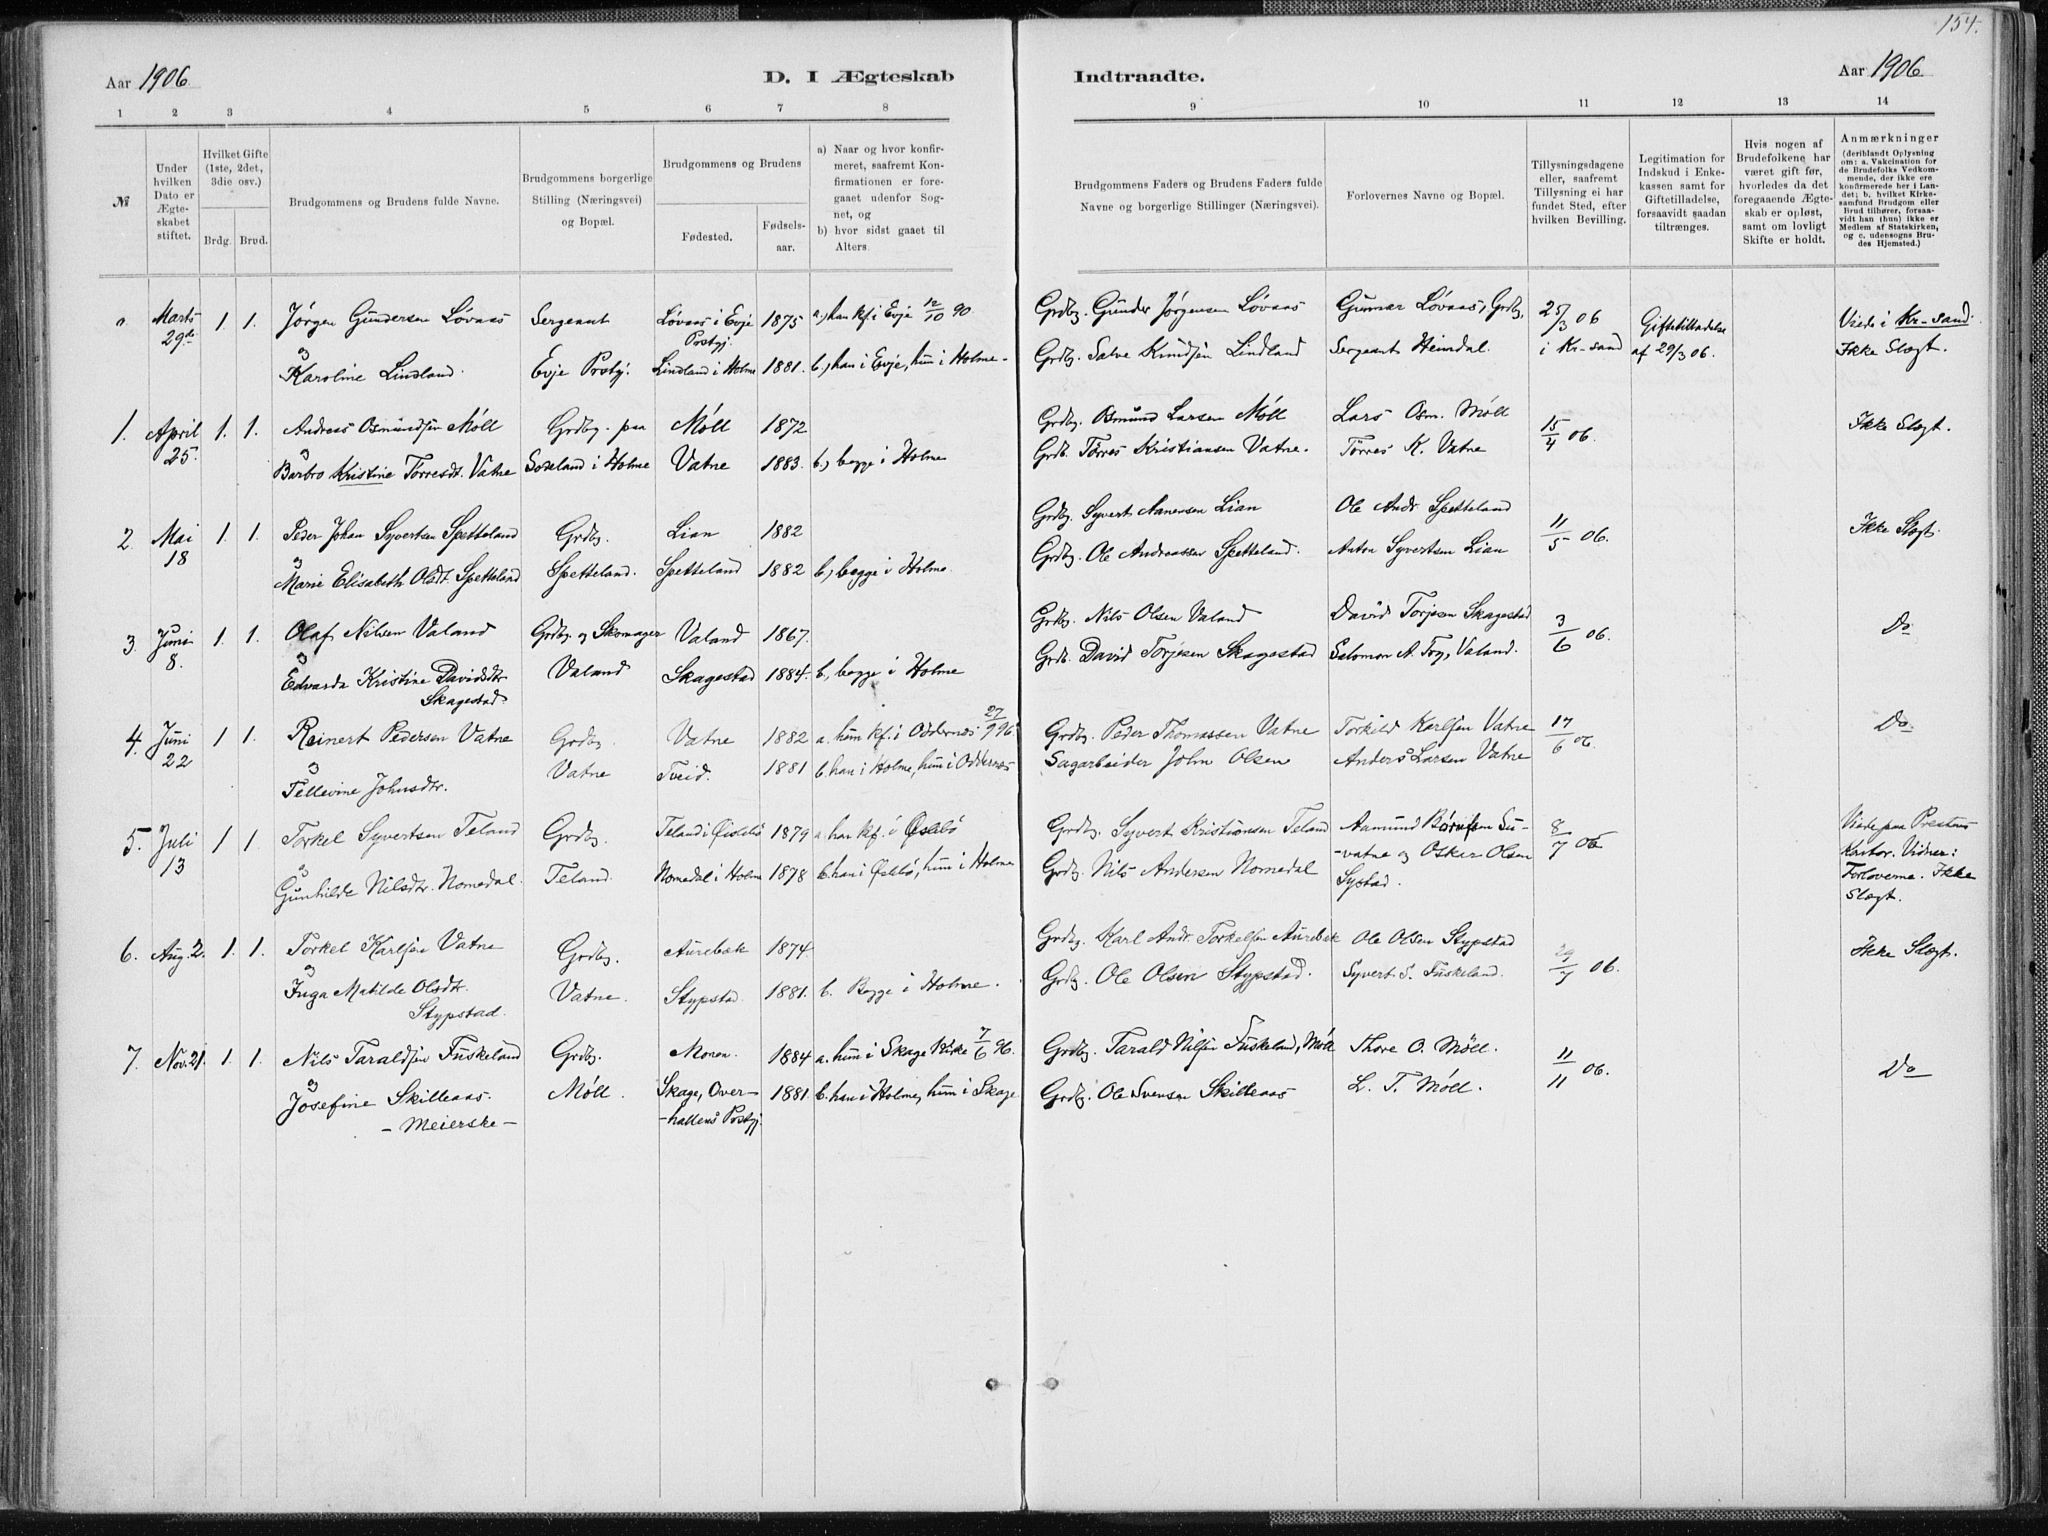 154.
Aar 1906
D. I Ægteskab
Indtraadte.
Aar 1906
1 2 3 4 5 6 7 8 9 10 11 12 13 14
№
Under hvilken Dato er Ægte-skabet stiftet.
Hvilket Gifte (1ste, 2det, 3die osv.)
Brdg. Brud.
Brudgommens og Brudens fulde Navne.
Brudgommens borgerlige Stilling (Næringsvei) og Bopæl.
Brudgommens og Brudens
Fødested.
Fødsels-aar.
a) Naar og hvor konfir-meret, saafremt Kon-firmationen er fore-gaaet udenfor Sog-net, og
b) hvor sidst gaaet til Alters.
Brudgommens Faders og Brudens Faders fulde Navne og borgerlige Stillinger (Næringsvei).
Forlovernes Navne og Bopæl.
Tillysningsdagene eller, saafremt Tillysning ei har fundet Sted, efter hvilken Bevilling.
Legitimation for Indskud i Enke-kassen samt for Giftetilladelse, forsaavidt saadan tiltrænges.
Hvis nogen af Brudefolkene har været gift før, hvorledes da det foregaaende Ægte-skab er opløst, samt om lovligt Skifte er holdt.
Anmærkninger (deriblandt Oplysning om: a. Vakcination for de Brudefolks Vedkom-mende, der ikke ere konfirmerede her i Lan-det; b. hvilket Kirke-samfund Brudgom eller Brud tilhører, forsaa-vidt han (hun) ikke er Medlem af Statskirken, og c. udensogns Bru-des Hjemsted.)
a Marts 29de 1. 1. Jørgen Gundersen Løvaas Sergeant Løvaas i Evje Prstgj. 1875 a, han kf. i Evje 12/10 90 Grdbg. Gunder Jørgensen Løvaas Gunnar Løvaas, Grdbg, 25/3 06 Giftetilladelse Viede i Kr-sand.
& Karoline Lindland. Evje Prstgj. Lindland i Holme 1881. b, han i Evje, hun i Holme- Grdbg. Salve Knudsen Lindland Sergeant Heimdal. i Kr-sand af 29/3 06. Ikke Slegt.
1. April 25 1. 1. Andreas Osmundsen Møll Grdbg. paa Møll 1872 Grdbg. Osmund Larsen Møll Lars Osm. Møll 15/4 06. Ikke Slegt.
& Barbro Kristine Tørresdt. Vatne Soseland i Holme Vatne 1883. b, begge i Holme Grdb. Tørres Kristiansen Vatne. Tørres K. Vatne
2. Mai 18 1. 1. Peder Johan Syvertsen Spetteland Grdbg. Lian 1882 Grdbg. Syvert Nanensen Lian Ole Andr. Spetteland 11/5 06. Ikke Slegt.
& Marie Elisabeth Olsdt. Spetteland Spetteland. Spetteland 1882 b, begge i Holme. Grdbg. Ole Andreassen Spetteland. Anton Syvertsen Lian
3. Juni 8. 1. 1. Olaf Nilsen Valand Grdbg. og Skomager Valand 1867. Grdbg. Nils Olsen Valand David Torjesen Skagestad 3/6 06. Do
& Edvarda Kristine Davidsdtr Skagestad Valand Skagestad 1884. b, begge i Holme Grdb. David Torjesen Skagestad Salomon A. Foy, Valand.
4. Juni 22 1 1. Reinert Pedersen Vatne Grdbg. Vatne 1882 a. hun kf. i Oddernes 27/9 96. Grdbg. Peder Thomassen Vatne Torkild Karlsen Vatne 17/6 06. Do
& Tellevine Johnsdtr. Vatne Tveid. 1881 b. han i Holme, hun i Oddernes Sagarbeider John Olsen Anders Larsen Vatne
5. Juli 13 1 1. Torkel Syvertsen Teland Grdbg. Teland i Øislebø 1879 a. han kf. i Øslebø Grdbg. Syvert Kristiansen Teland Aamund Børufsen Su- 8/7 06 Viede paa Prestens
& Gunhilde Nilsdtr. Nomedal. Teland. Nomedal i Holme 1878 b. han i Øslebø, hun i Holme Grdbg. Nils Andersen Nomedal -vatne og Oskar Olsen Systad. Kontor. Vidner: Forloverne. Ikke Slegt.
6. Aug. 2. 1. 1. Torkel Karlsen Vatne Grdbg. Aurebæk 1874 Grdbg. Karl Andr. Torkelsen Aurebæk Ole Olsen Stypstad 29/7 06. Ikke Slegt.
& Inga Matilde Olsdtr. Stypstad. Vatne. Stypstad. 1881. b. Begge i Holme. Grdbg. Ole Olsen Stypstad. Syvert S. Fuskeland.
7. Nov. 21. 1. 1. Nils Taraldsen Fuskeland Grdbg. Monen. 1884 a. hun i Skage Kirke 7/6 96. Grdbg. Tarald Nilsen Fuskeland, Møll Thore O. Møll. 11/11 06. Do
& Josefine Skilleaas. - Meierske - Møll. Skage, Over-hallens Prstgj. 1881. b. han i Holme, hun i Skage Grdbg. Ole Svensen Skilleaas L. T. Møll.